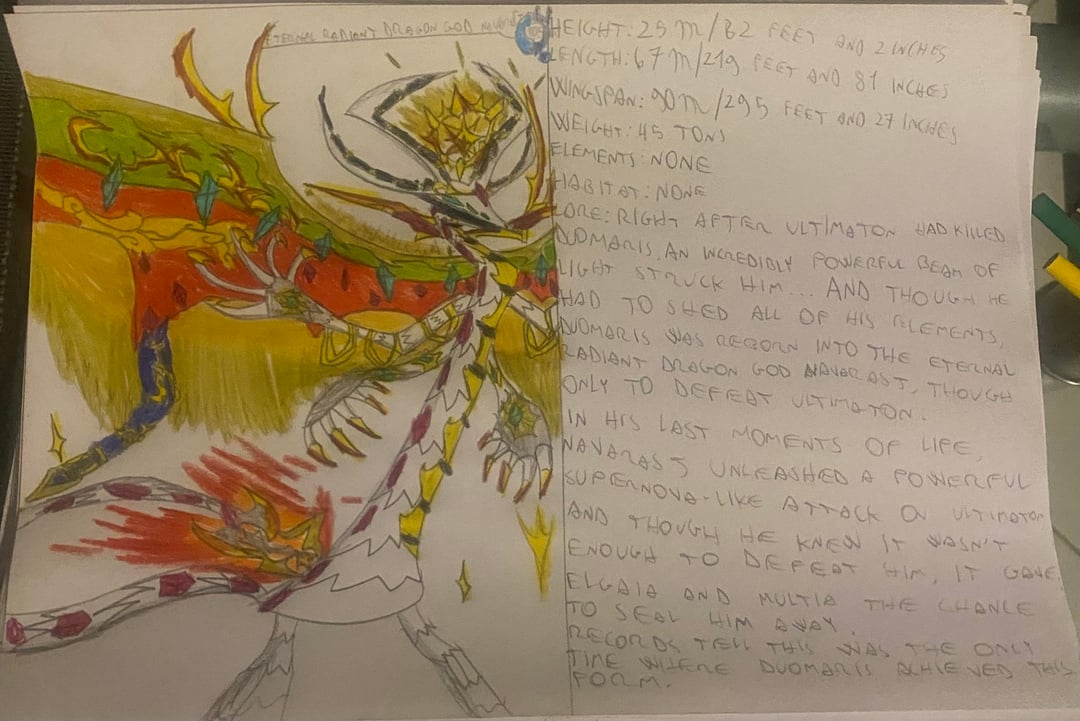 ETERNAL RADIANT DRAGON GOD
HEIGHT: 25 M/82 FEET AND 2 INCHES
LENGTH: 67 M/219 FEET AND 81 INCHES
WINGSPAN: 90 M/295 FEET AND 27 INCHES
WEIGHT: 45 TONS
ELEMENTS: NONE
HABITAT: NONE
LORE: RIGHT AFTER ULTIMATON HAD KILLED
DUOMARIS, AN INCREDIBLY POWERFUL BEAM OF
LIGHT STRUCK HIM... AND THOUGH HE
HAD TO SHED ALL OF HIS ELEMENTS,
DUOMARIS WAS REBORN INTO THE ETERNAL
RADIANT DRAGON GOD NAVARAST, THOUGH
ONLY TO DEFEAT ULTIMATON.
IN HIS LAST MOMENTS OF LIFE,
NAVARAST UNLEASHED A POWERFUL
SUPERNOVA-LIKE ATTACK ON ULTIMATON
AND THOUGH HE KNEW IT WASN'T
ENOUGH TO DEFEAT HIM, IT GAVE
ELGAIA AND MULTIA THE CHANCE
TO SEAL HIM AWAY.
RECORDS TELL THIS WAS THE ONLY
TIME WHERE DUOMARIS ACHIEVED THIS
FORM.